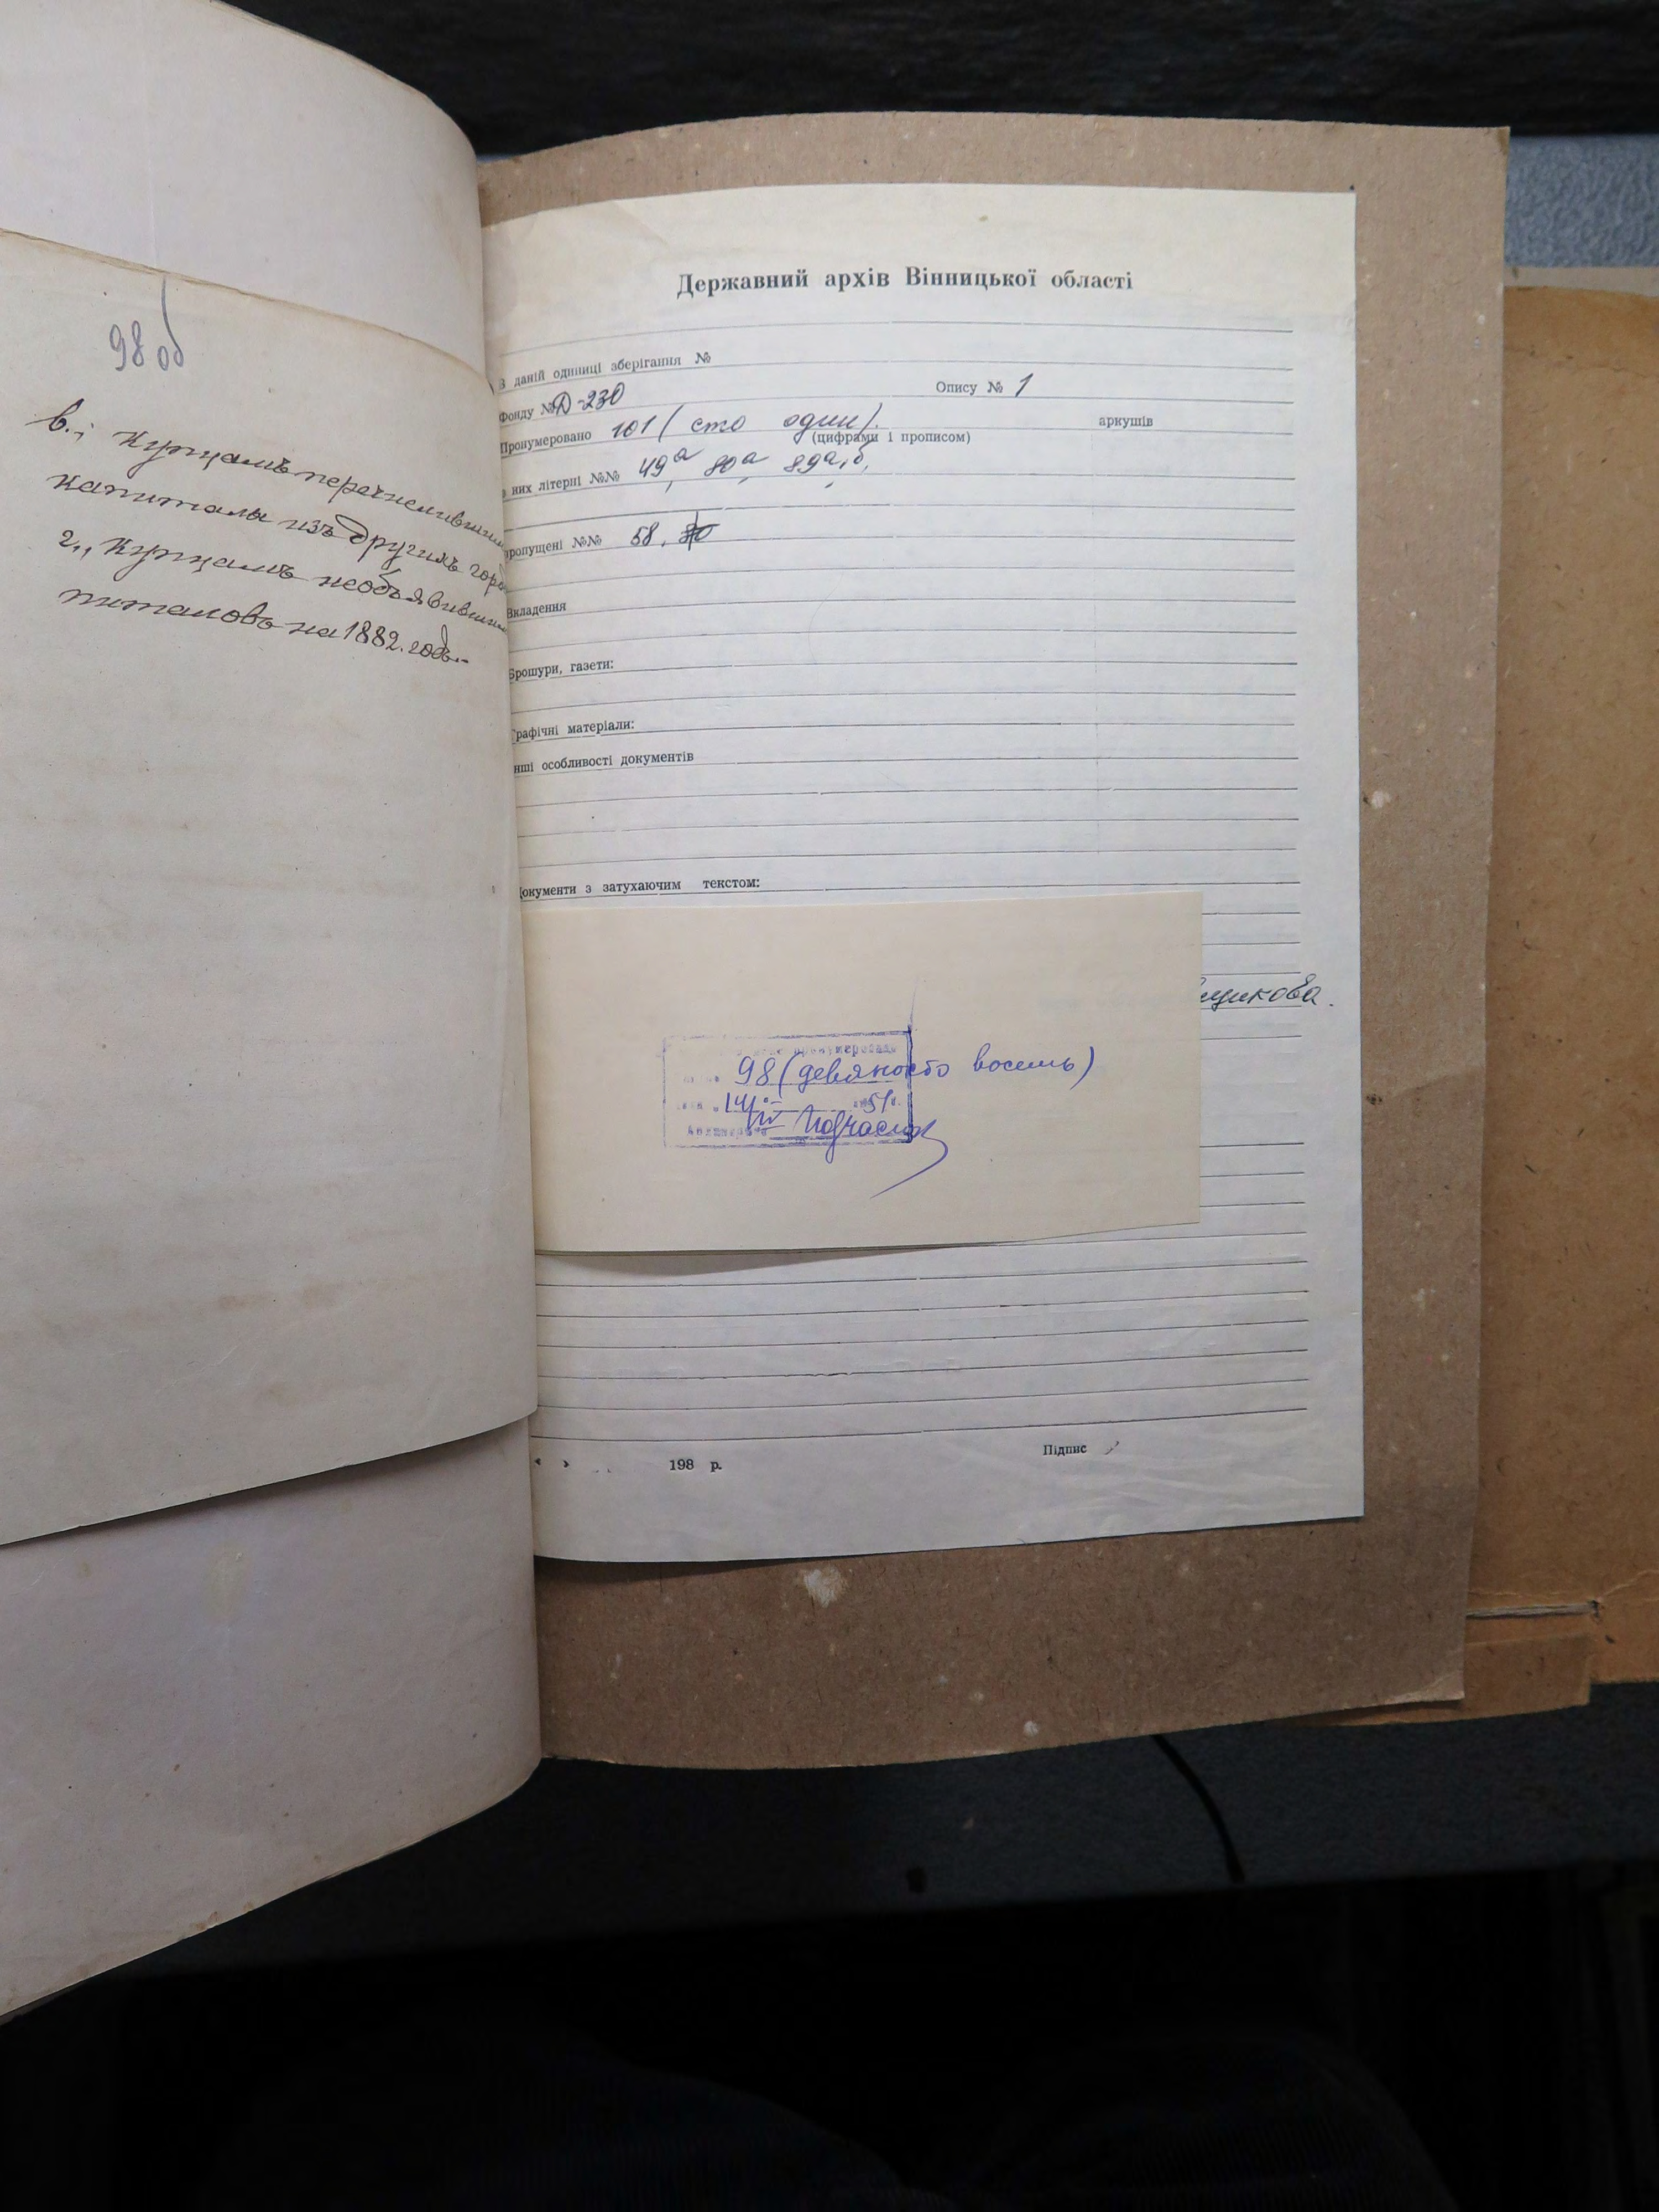 98 об
в., Купцамъ перечислившим
капиталы изъ другихъ горо
г., Купцамъ необъявившим
питаловъ на 1882. годъ.
Державний архів Вінницької області
В даній одиниці зберігання №
Фонду № Д-230 Опису № 1
Пронумеровано 101 (сто один). аркушів
(цифрами і прописом)
них літерні №№ 49а, 80а, 89а,б,
ропущені №№ 58,
Вкладення
Брошури, газети:
Графічні матеріали:
нші особливості документів
окументи з затухаючим текстом:
щикова.
пронумеровано
98 (девяносто восемь)
14 IV 51
198 р. Підпис